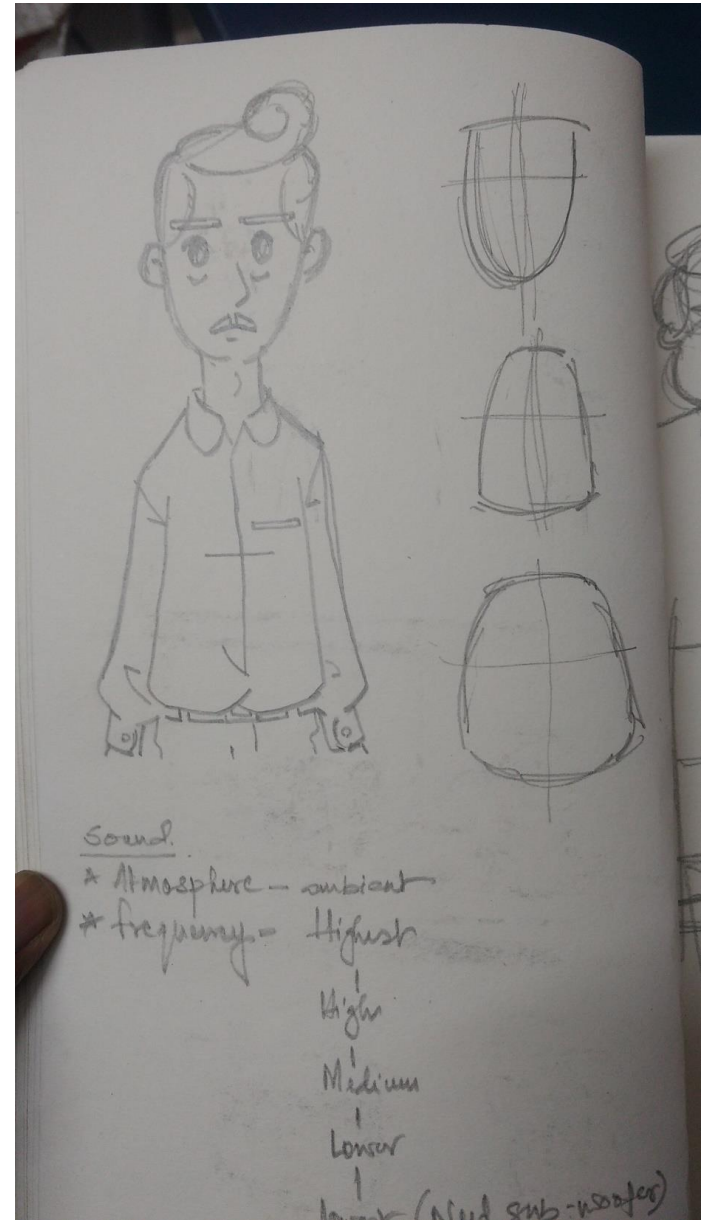 Sound.
* Atmosphere - ambient
* frequency - Highest
High
Medium
Lower
lowest (Need sub-woofer)